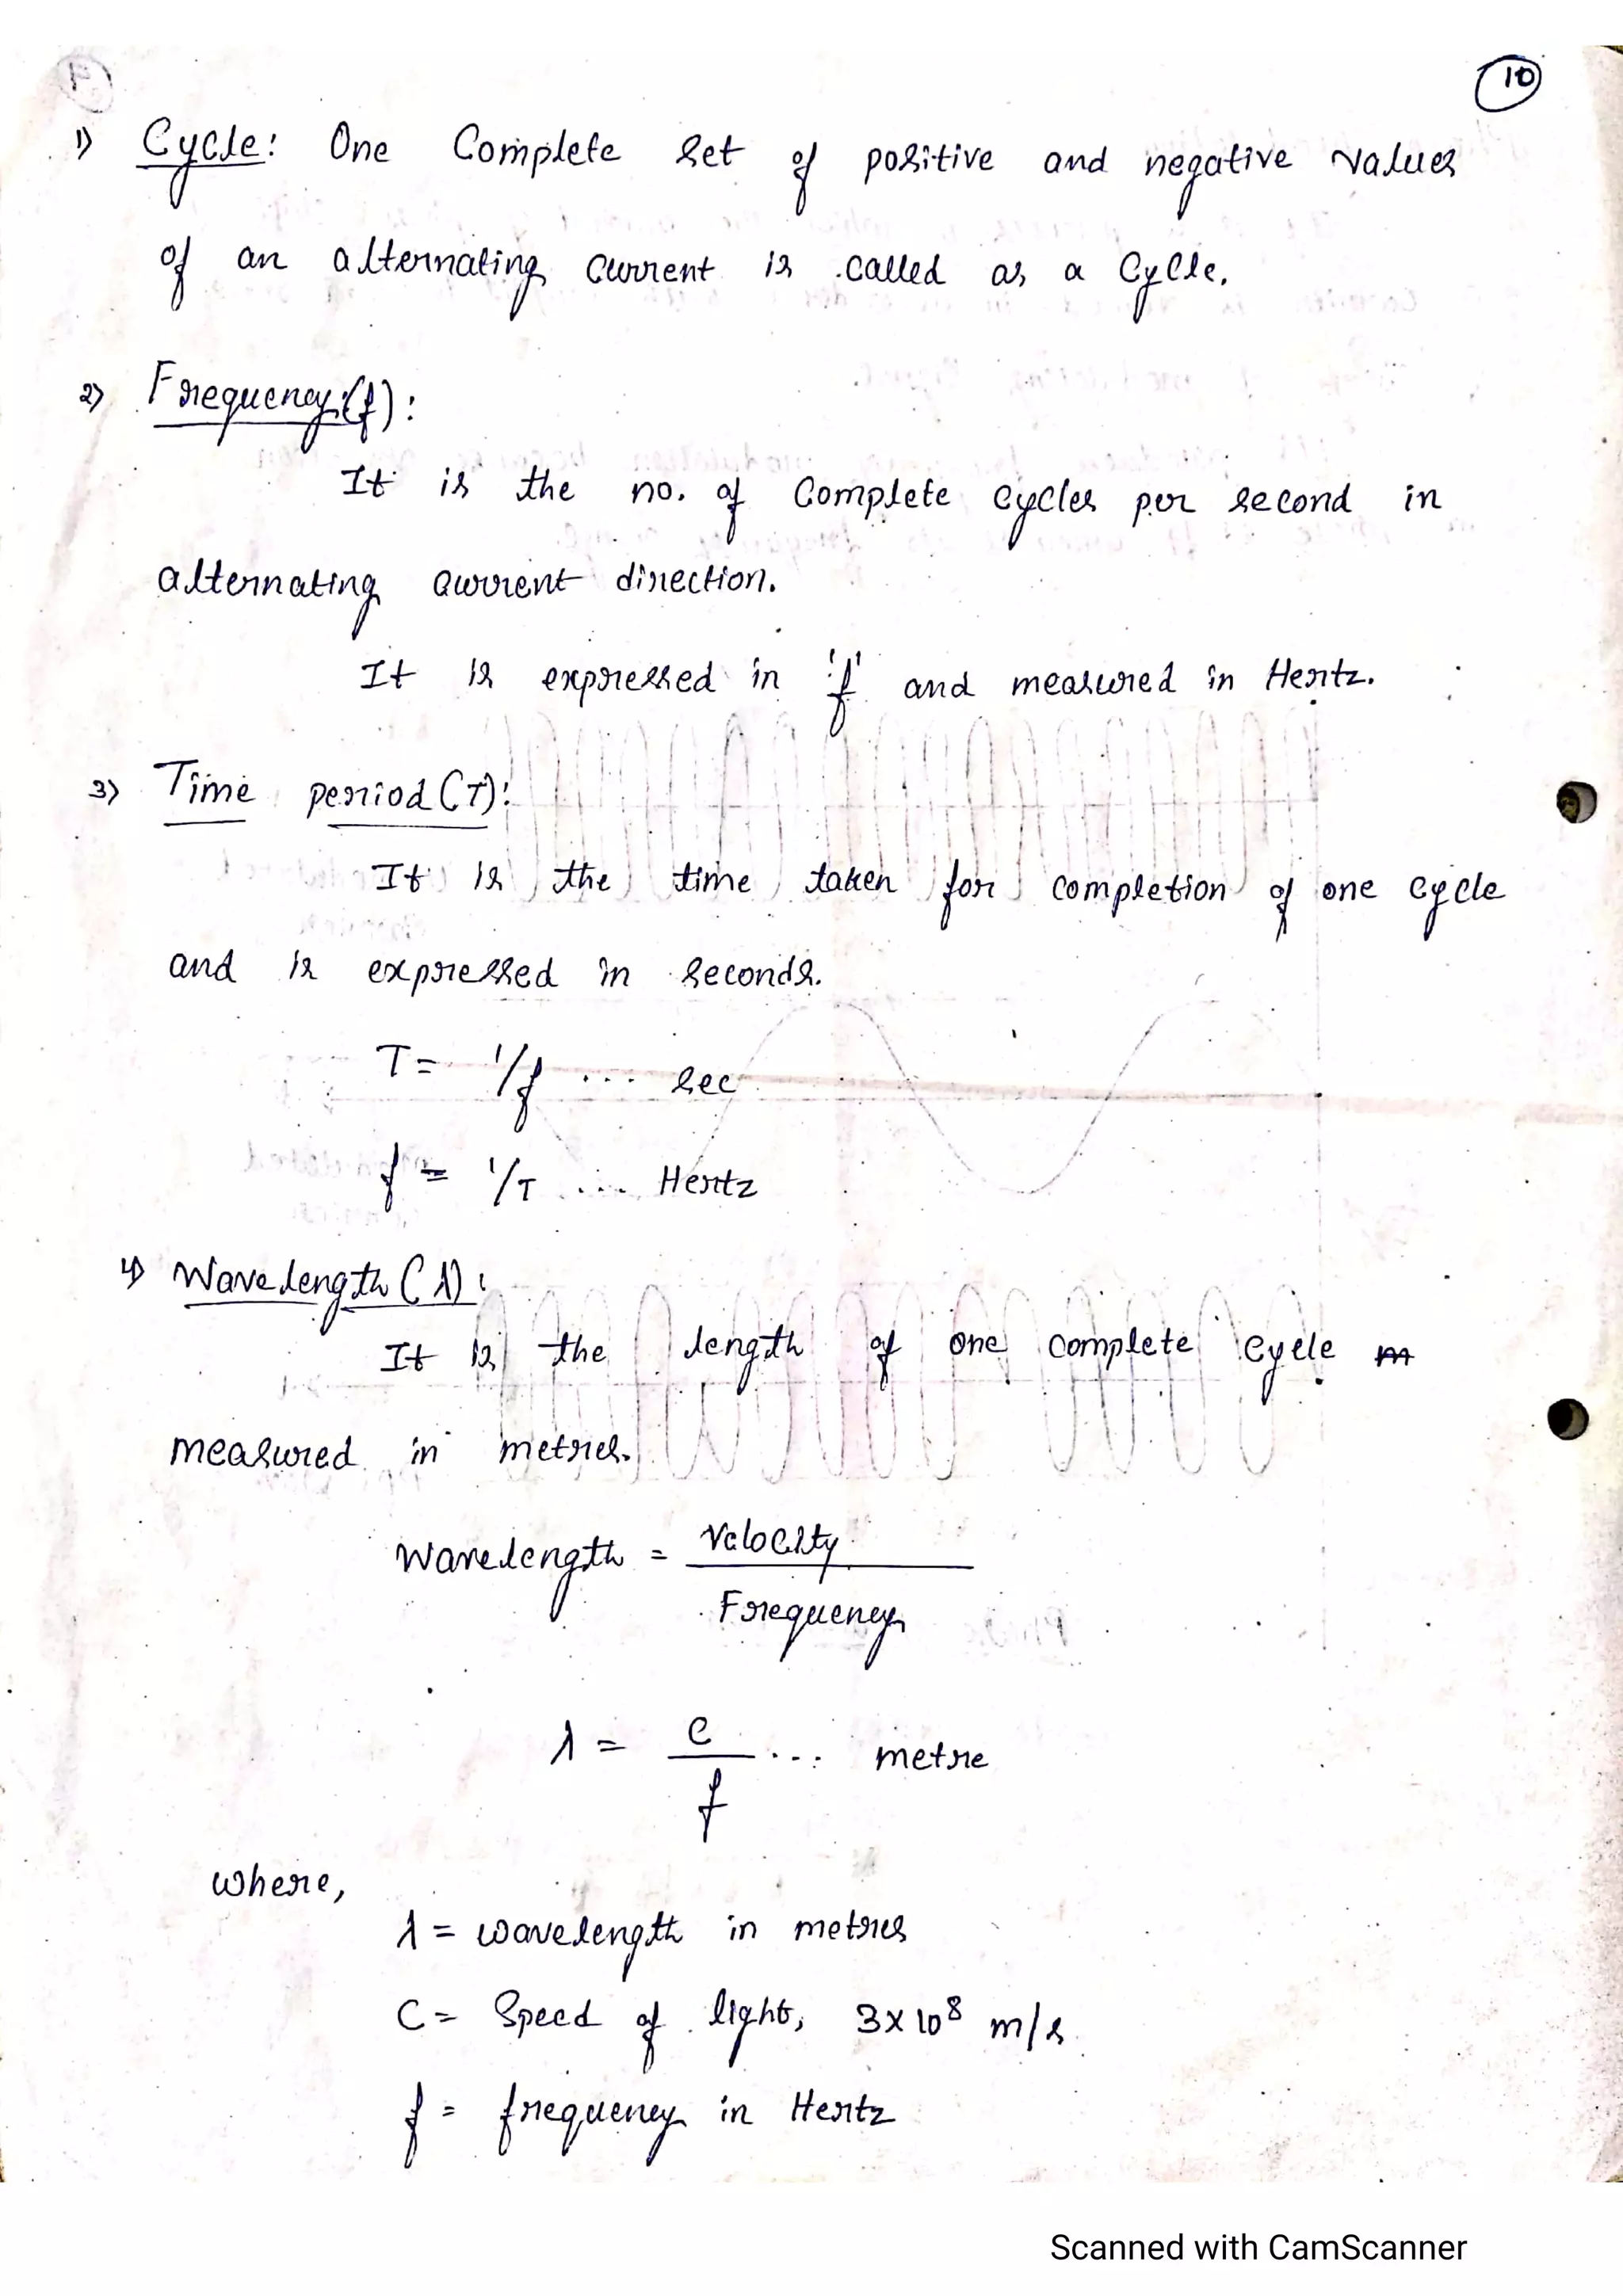 10
1) Cycle: One Complete set of positive and negative values
of an alternating current is called as a cycle.
2) Frequency (f):
It is the no. of Complete cycles per second in
alternating current direction.
It is expressed in 'f' and measured in Hertz.
3) Time period (T):
It is the time taken for completion of one cycle
and is expressed in seconds.
T = 1/f ... sec
f = 1/T ... Hertz
4) Wavelength (λ):
It is the length of one complete cycle
measured in metres.
Wavelength = Velocity
Frequency
λ = c ... metre
f
where,
λ = wavelength in metres
C = Speed of light, 3x10⁸ m/s
f = frequency in Hertz
Scanned with CamScanner